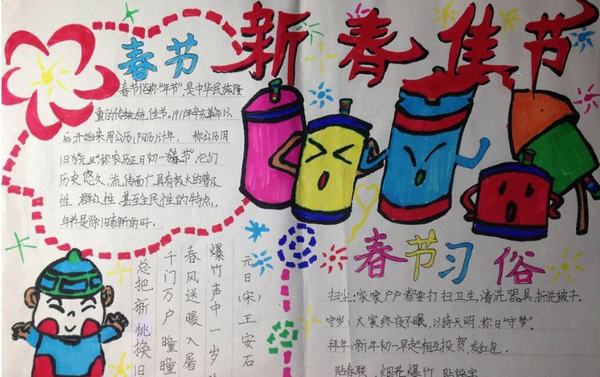 新春佳节
春节
春节俗称"年节",是中华民族隆
重的传统佳节,1911年辛亥革命以
后开始采用公历(阳历)计年, 称公历
称农历正月初一"春节",它们
历史悠久,流传面广具有极大的普及
性,群众性,甚至全民性的特点,
年节是除旧布新的日
元日(宋)王安石
爆竹声中一岁
春风送暖入屠
千门万户曈曈
总把新桃换旧
春节习俗
扫尘:家家户户都要打扫卫生,清洗器具,拆洗被子。
守岁:大家终夜不眠,以待天明,称曰"守岁"。
拜年:新年初一早起相互投贺,发红包。
贴春联、烟花爆竹、贴